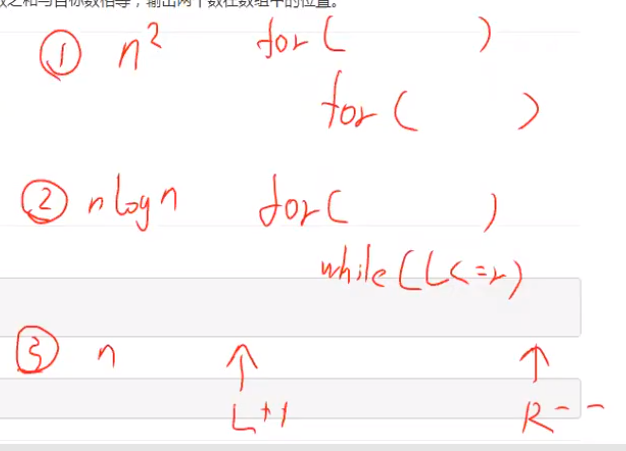 数之和与目标数相等，输出两个数在数组中的位置。
① n² for( )
for( )
② nlogn for( )
while(L<=r)
③ n ↑ ↑
L++ R--